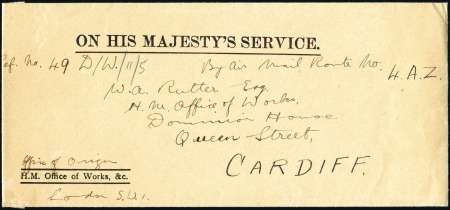 ON HIS MAJESTY'S SERVICE.
Ref. No. 49 D/W/11/5
By Air Mail Route No. 4. A.Z.
W.A. Rutter Esq.
H.M. Office of Works,
Dominion House
Queen Street,
CARDIFF.
Office of Origin
H.M. Office of Works, &c.
London S.W.1.